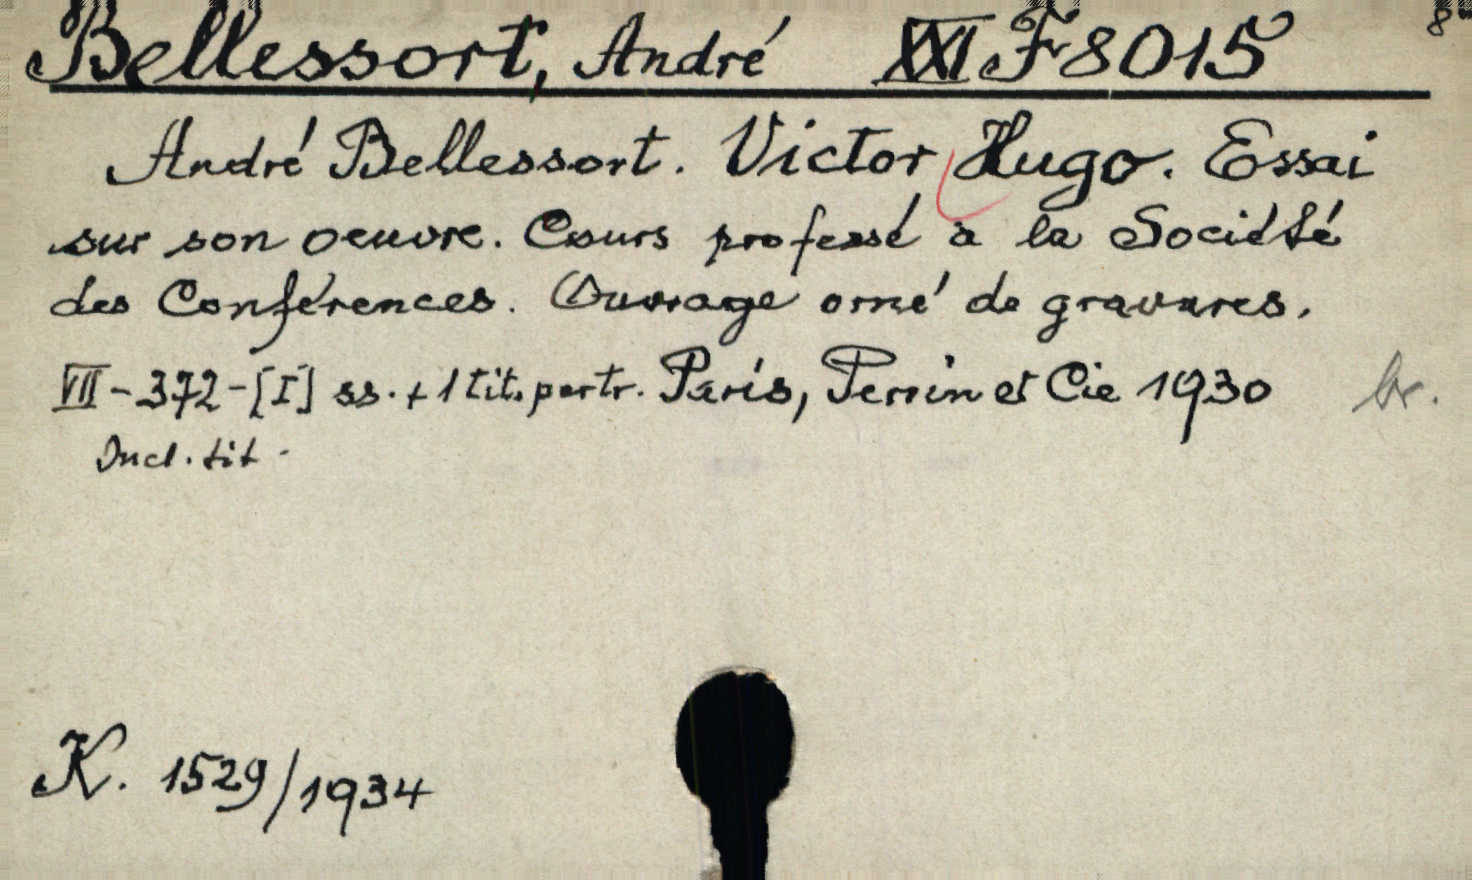 Bellessort, André XXI F 8015 8°
André Bellessort. Victor Hugo. Essai
sur son oeuvre. Cours professé a la Société
des Conférences. Ouvrage orné de gravures.
VII-372-[I] ss. + 1 tit. portr. Paris, Perrin et Cie 1930 br.
Incl. tit.
K. 1529/1934